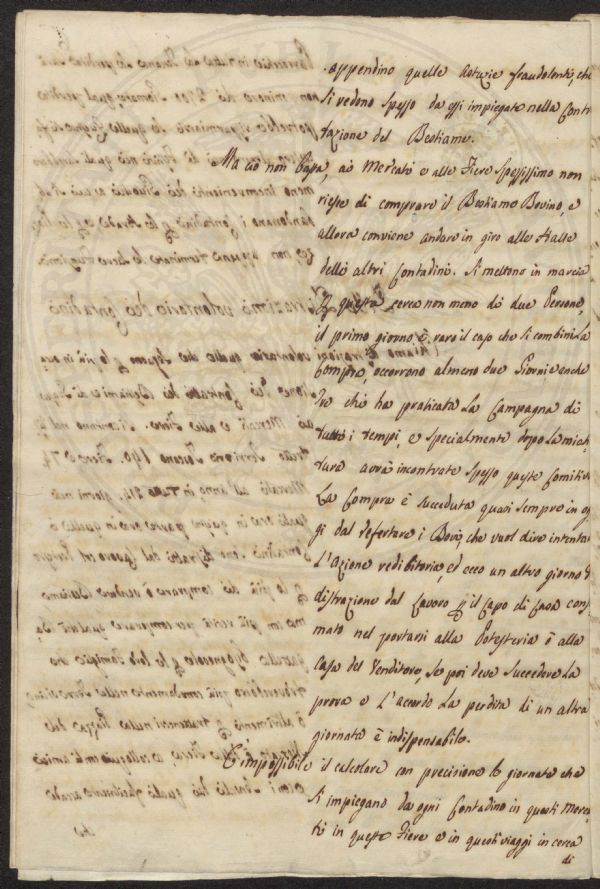 appendino quelle astuzie fraudolenti, che
si vedono spesso da essi impiegate nella Contr
tazione del Bestiame.
Ma ciò non basta, ai Mercati e alle Fiere spessissimo non
riesce di comprare il Bestiame Bovino, e
allora conviene andare in giro alle stalle
delli altri Contadini. Si mettono in marcia
questa cerca non meno di due Persone,
il primo giorno è raro il caso che si combini la
Compra, occorrono almeno due Giorni e anche
Tre chi ha praticata la Campagna di
tutti i tempi, e specialmente dopo la miet
tura avrà incontrate spesso queste Comitive
La Compra è succeduta quasi sempre in og
gi dal refertare i Bovi, che vuol dire intenta
L'Azione redibitoria, ed ecco un altro giorno
distrazione dal Lavoro p il Capo di Casa cons
mato nel portarsi alla Potesteria è alla
Casa del Venditore, se poi deve succedere la
prova e L'accordo la perdita di un altra
giornata è indispensabile.
È impossibile il calcolare con precisione le giornate che
si impiegano da ogni Contadino in questi Merca
ti in queste Fiere e in questi viaggi in cerca
di